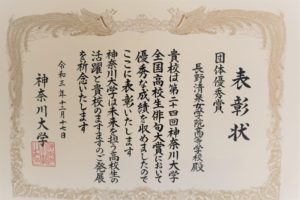 表彰状
団体優秀賞
長野清泉女学院高等学校殿
貴校は第二十四回神奈川大学
全国高校生俳句大賞において
優秀な成績を収めましたので
ここに表彰いたします
神奈川大学は未来を担う高校生の
活躍と貴校のますますのご発展
を祈念いたします
令和三年十二月十七日
神奈川大学